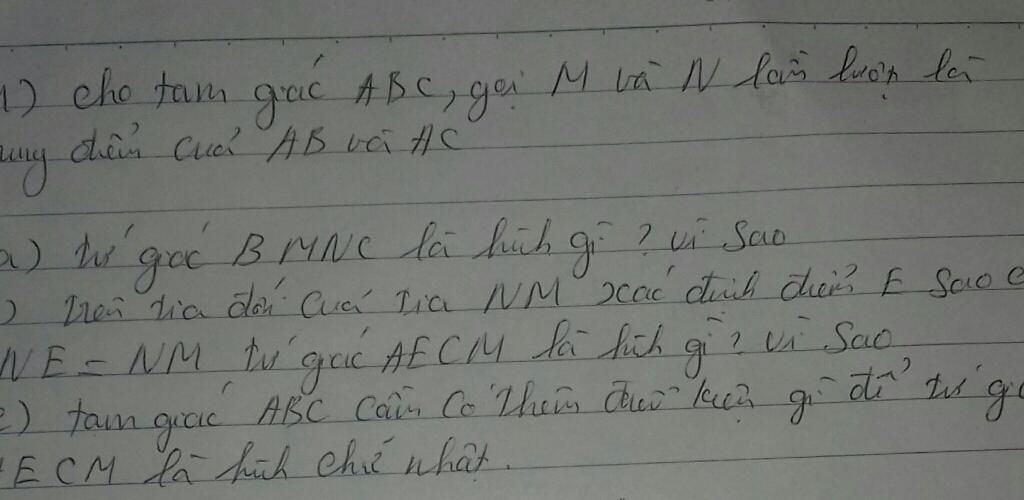 1) cho tam giác ABC, gọi M và N lần lượt là
ung điểm của AB và AC
a) tứ giác BMNC là hình gì? vì sao
) trên tia đối của tia NM xác định điểm E sao c
NE = NM tứ giác AECM là hình gì? vì sao
c) tam giác ABC cần có thêm điều kiện gì để tứ gi
AECM là hình chữ nhật.